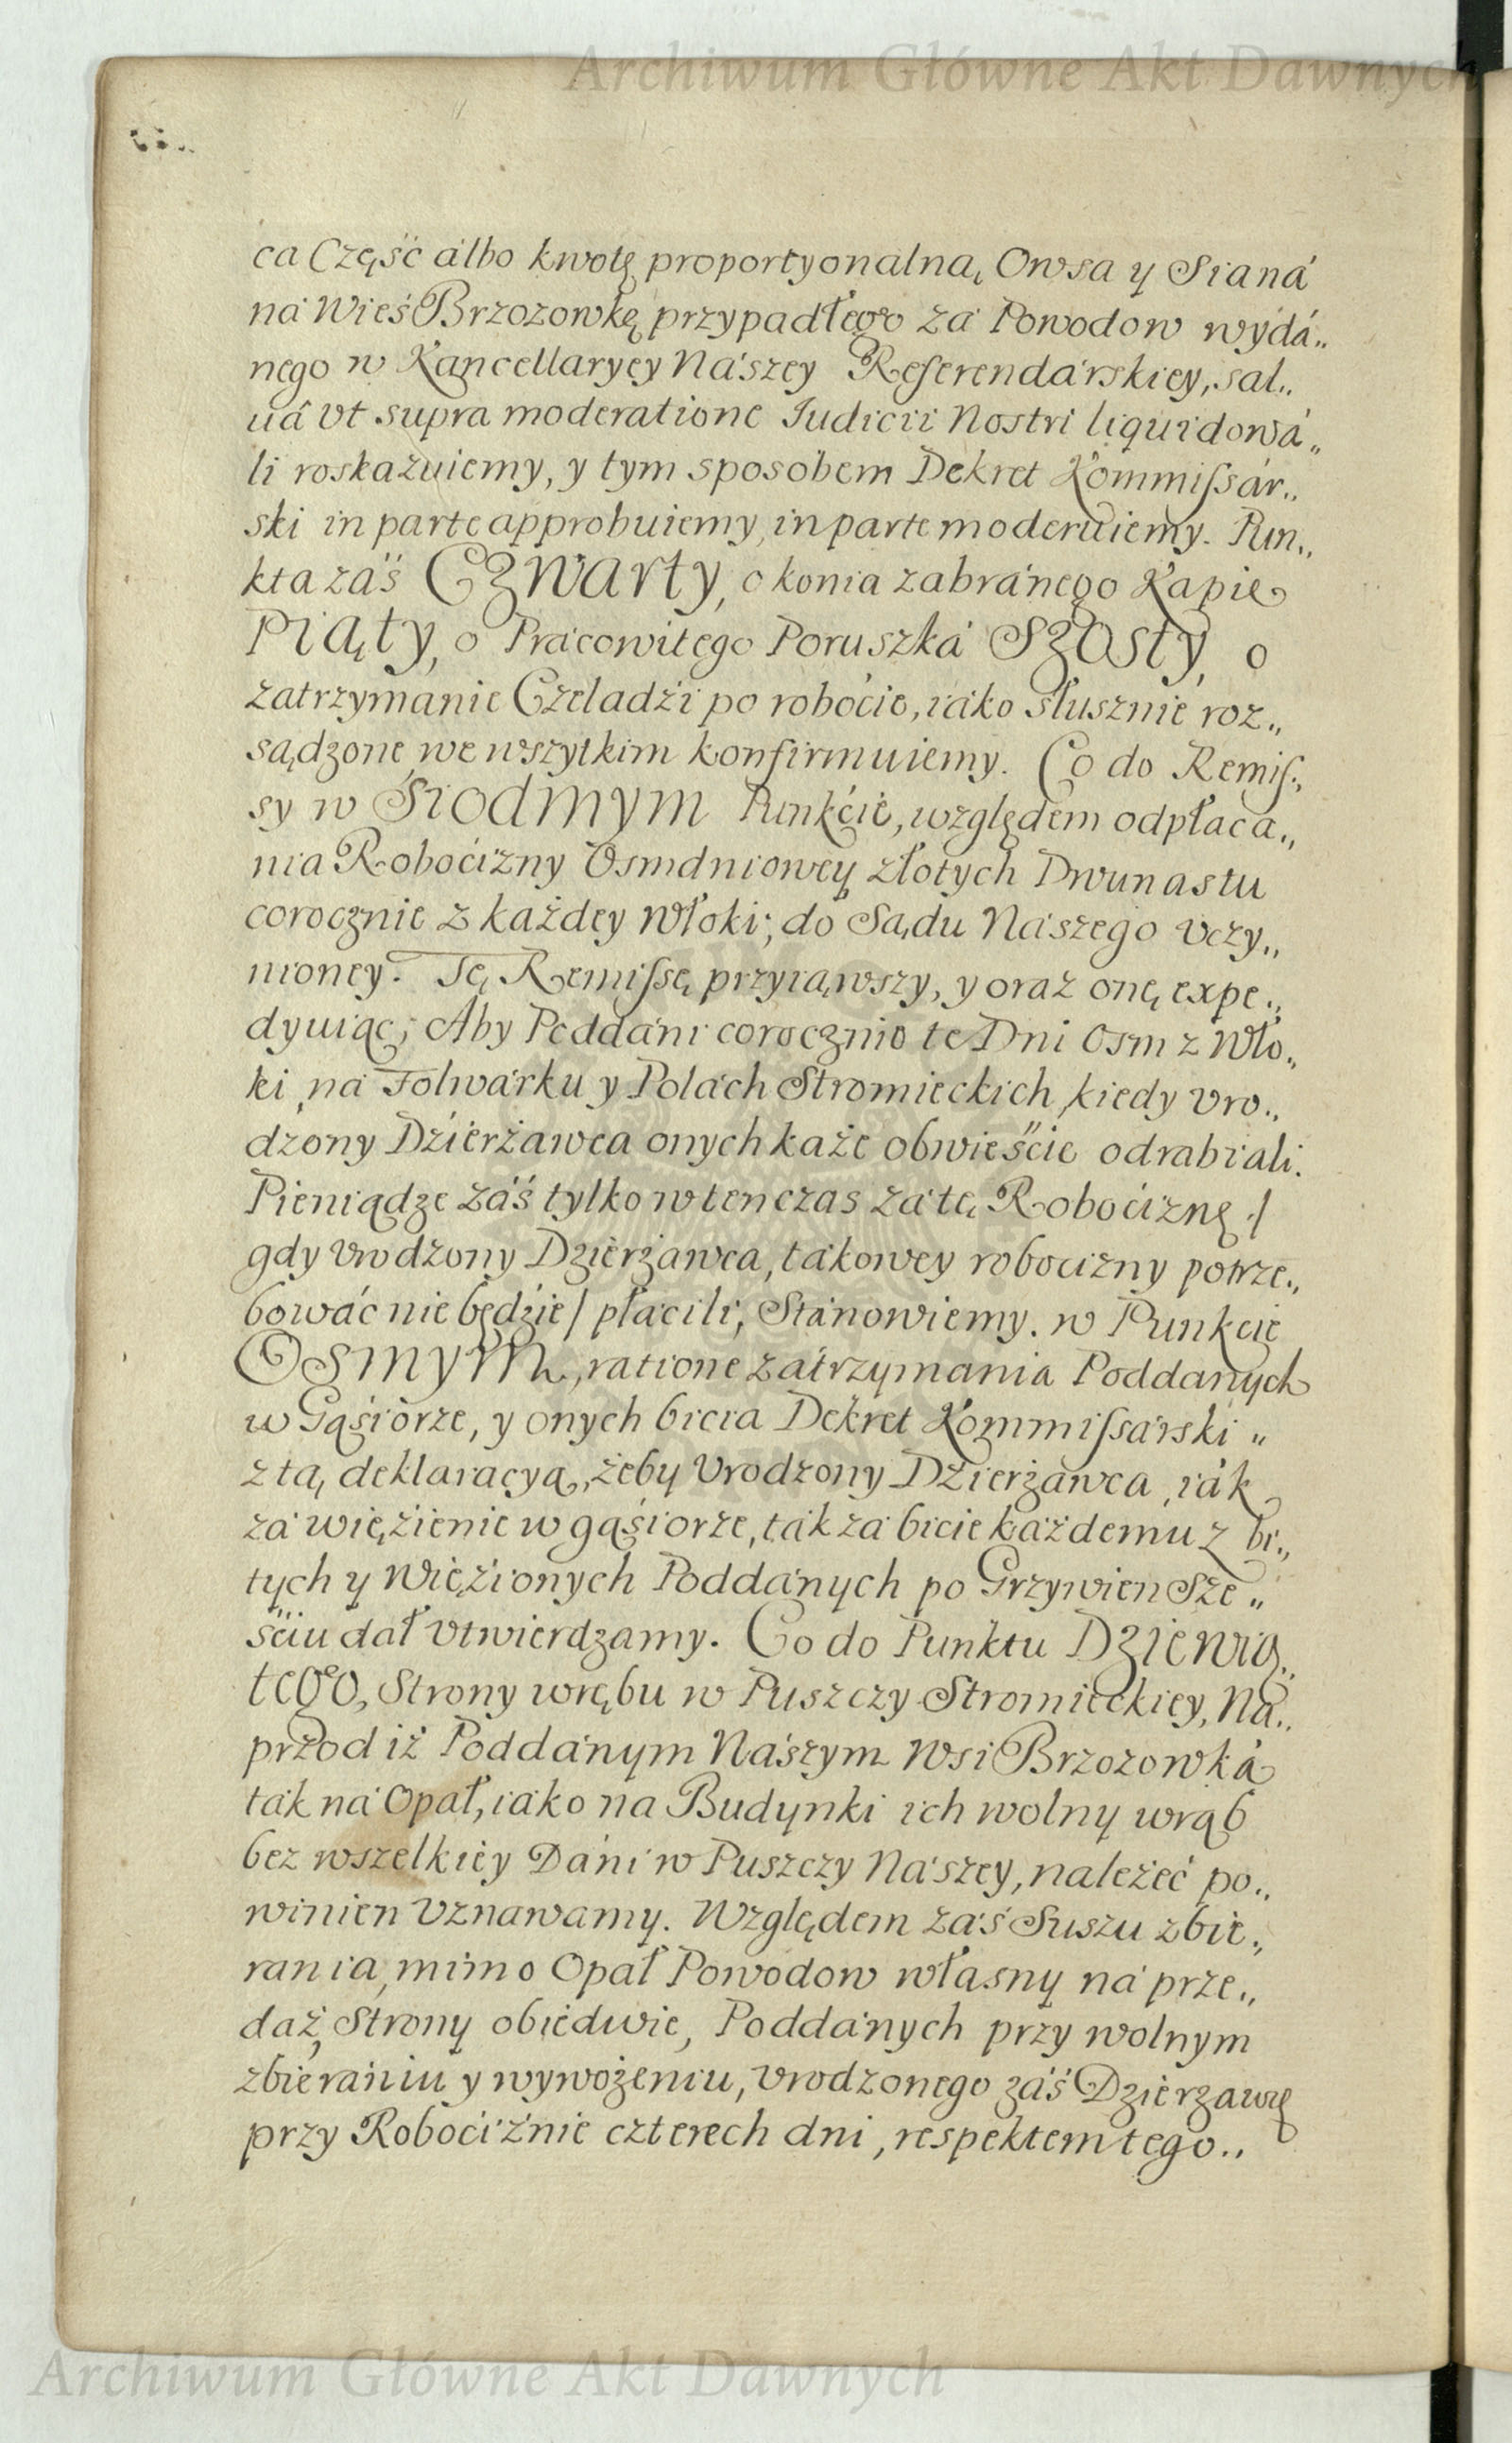 Archiwum Główne Akt Dawnych
ca Część álbo kwotę proportyonalną Owsa y Sianá
ná Wieś Brzozowkę przypadłego zá Powodow wydá„
nego w Kancellaryey Nászey Referendárskiey, sal„
uâ vt supra moderatione Iudicii Nostri liquidowá„
li roskazuiemy, y tym sposobem Dekret Kommiſsár„
ski in parte approbuiemy, in parte moderuiemy. Pun„
kta záś Czwarty, o konia zabránego Kapie
Piąty, o Prácowitego Poruszká Szosty, o
zatrzymanie Czeladźi po roboćie, iáko słusznie roz„
sądzone we wszytkim konfirmuiemy. Co do Remiſ„
sy w Siodmym Punkćie, względem odpłaca„
nia Roboćizny Osmdniowey złotych Dwunastu
corocznie z każdey Włoki; do Sądu Nászego vczy„
nioney. Tę Remiſsę przyiąwszy, y oraz onę expe„
dyuiąc; Aby Poddáni corocznie te Dni Osm z Wło„
ki, ná Folwárku y Polách Stromieckich, kiedy vro„
dzony Dźierżawca onych każe obwieśćić odrabiali.
Pieniądze záś tylko w tenczas zá tę Roboćiznę /
gdy vrodzony Dzierżawca, tákowey roboćizny potrze„
bowáć nie będźie / płáćili, Stánowiemy. w Punkćie
Osmym, ratione zátrzymania Poddanych
w Gąśiorze, y onych bićia Dekret Kommiſsárski „
z tą deklaracyą, żeby Vrodzony Dźierżawca, iák
zá więźienie w gąśiorze, ták zá bićie káżdemu z bi„
tych y Więźionych Poddánych po Grzywien Sze„
śćiu dał vtwierdzamy. Co do Punktu Dziewią„
tego, Strony wrębu w Puszczy Stromieckiey, Na„
przod iż Poddánym Nászym Wsi Brzozowká
ták ná Opał, iáko na Budynki ich wolny wrąb
bez wszelkiey Dáni w Puszczy Nászey, należeć po„
winien vznawamy. Względem záś Suszu zbie„
rania, mimo Opał Powodow własny ná prze„
daż, Strony obiedwie, Poddánych przy wolnym
zbierániu y wywożeniu, vrodzonego záś Dzierzawcę
przy Roboćiźnie czterech dni, respektem tego„
Archiwum Główne Akt Dawnych